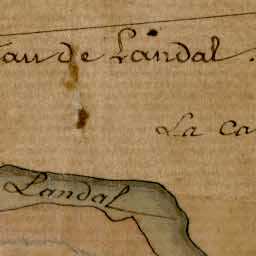 de Landal.
La
Landal